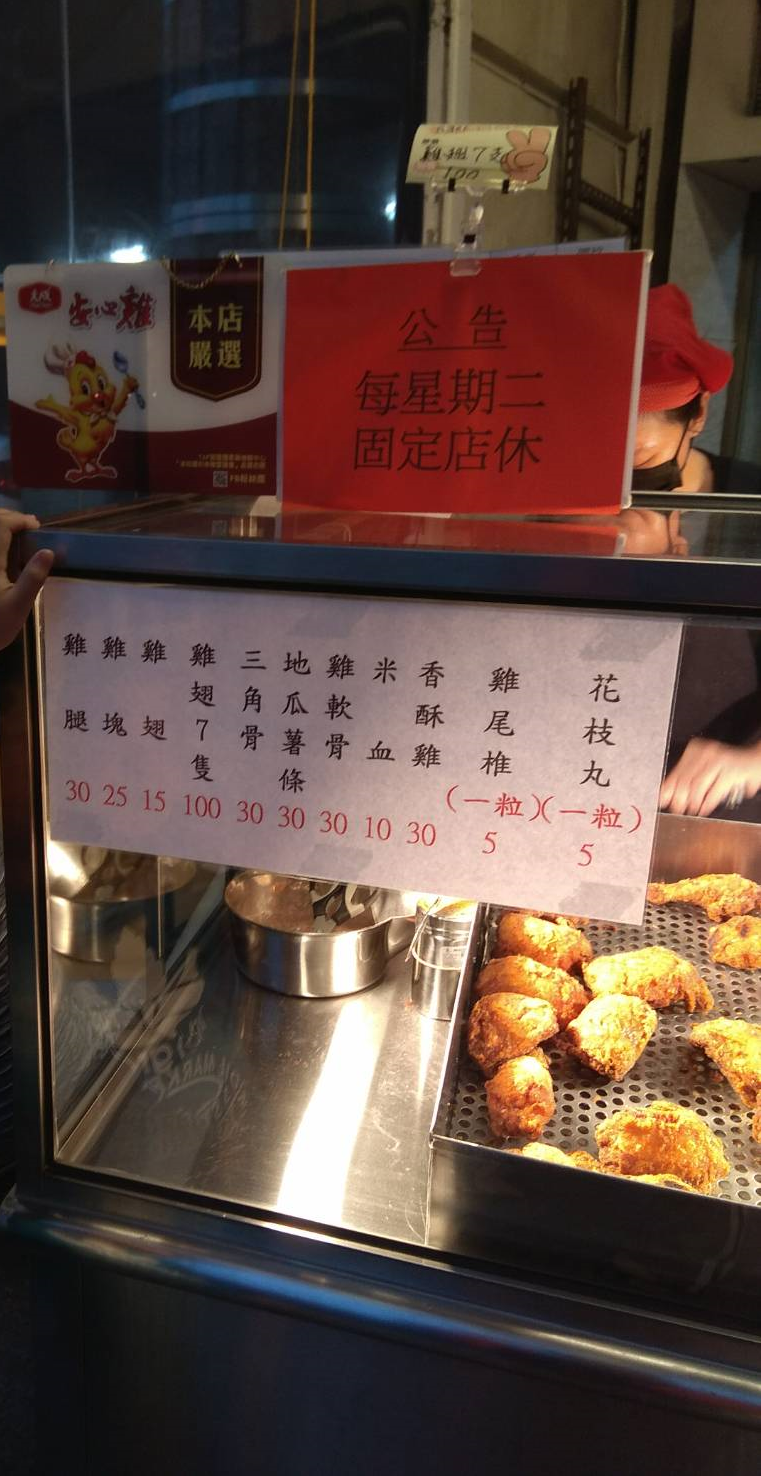 雞翅7隻
100
大成
安心雞
本店
嚴選
FB粉絲團
公告
每星期二
固定店休
雞腿 30
雞塊 25
雞翅 15
雞翅7隻 100
三角骨 30
地瓜薯條 30
雞軟骨 30
米血 10
香酥雞 30
雞尾椎(一粒) 5
花枝丸(一粒) 5